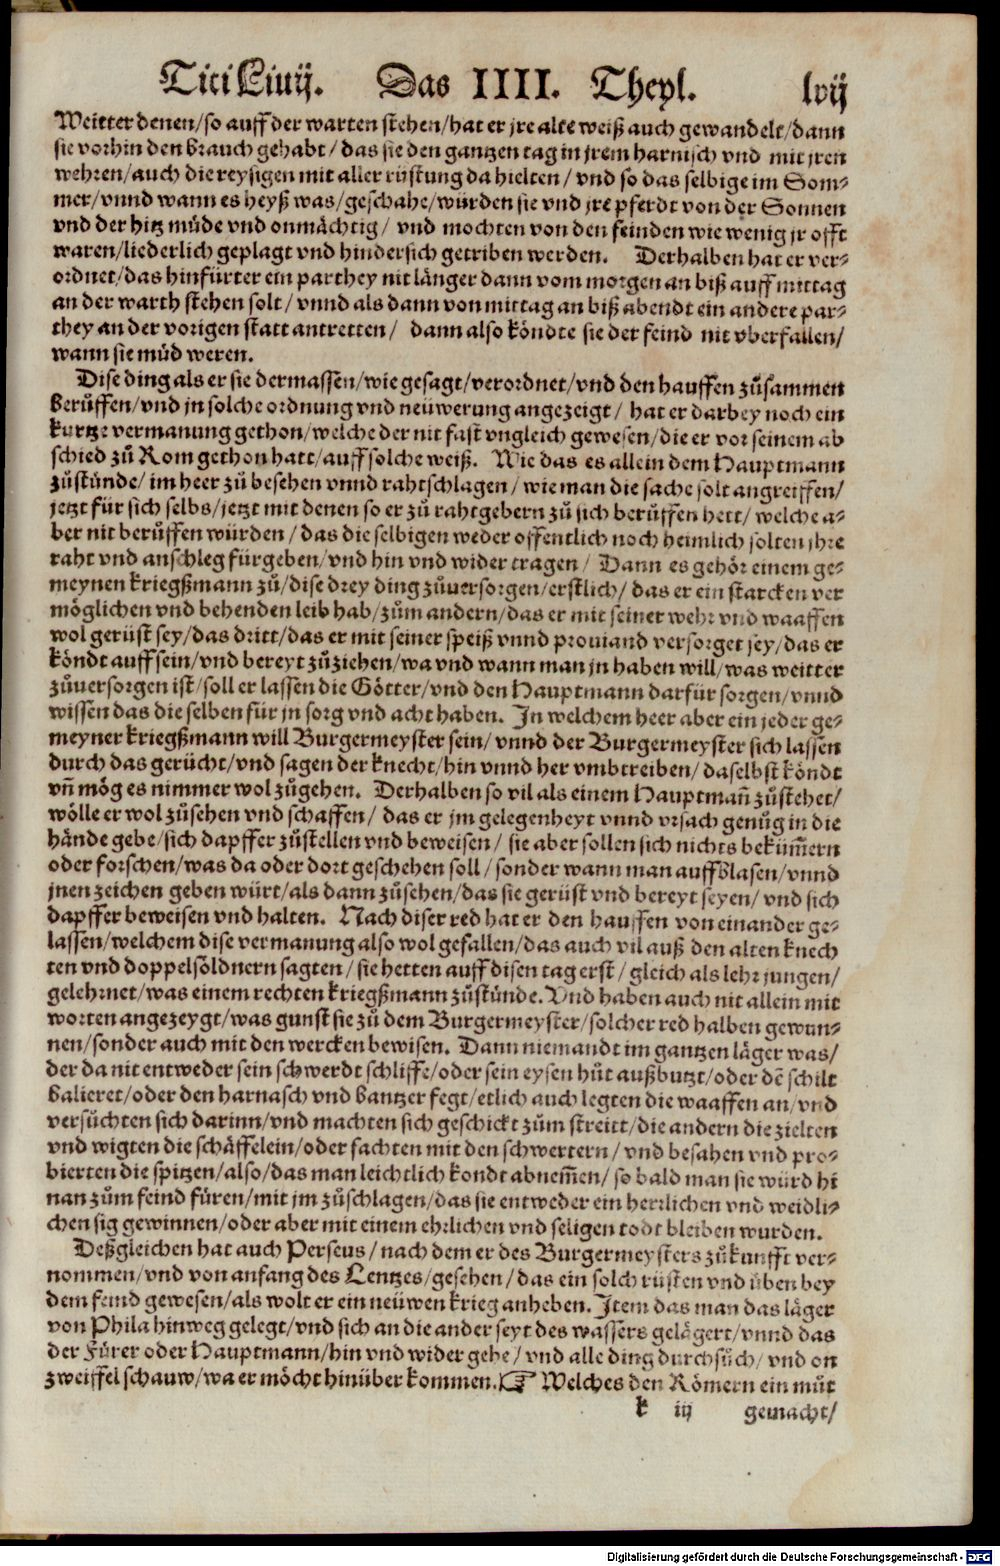 Titi Liuij. Das IIII. Theyl. lvij
Weitter denen/so auff der warten stehen/hat er jre alte weiß auch gewandelt/dann
sie vorhin den brauch gehabt/das sie den gantzen tag in jrem harnisch vnd mit jren
wehren/auch die reysigen mit aller rüstung da hielten/vnd so das selbige im Som⸗
mer/vnnd wann es heyß was/geschahe/würden sie vnd jre pferdt von der Sonnen
vnd der hitz müde vnd onmächtig/ vnd mochten von den feinden wie wenig jr offt
waren/liederlich geplagt vnd hindersich getriben werden. Derhalben hat er ver⸗
ordnet/das hinfürter ein parthey nit länger dann vom morgen an biß auff mittag
an der warth stehen solt/vnnd als dann von mittag an biß abendt ein andere par⸗
they an der vorigen statt antretten/ dann also köndte sie der feind nit vberfallen/
wann sie müd weren.
Dise ding als er sie dermassen/wie gesagt/verordnet/vnd den hauffen zůsammen
berůffen/vnd jn solche ordnung vnd neüwerung angezeigt/ hat er darbey noch ein
kurtze vermanung gethon/welche der nit fast vngleich gewesen/die er vor seinem ab
schied zů Rom gethon hatt/auff solche weiß. Wie das es allein dem Hauptmann
zůstünde/im heer zů besehen vnnd rahtschlagen/wie man die sache solt angreiffen/
jetzt für sich selbs/jetzt mit denen so er zů rahtgebern zů sich berůffen hett/welche a⸗
ber nit berůffen würden/das die selbigen weder offentlich noch heimlich solten jhre
raht vnd anschleg fürgeben/vnd hin vnd wider tragen/ Dann es gehör einem ge⸗
meynen kriegßmann zů/dise drey ding zůuersorgen/erstlich/das er ein starcken ver
möglichen vnd behenden leib hab/zům andern/das er mit seiner wehr vnd waaffen
wol gerüst sey/das dritt/das er mit seiner speiß vnnd prouiand versorget sey/das er
köndt auff sein/vnd bereyt zůziehen/wa vnd wann man jn haben will/was weitter
zůuersorgen ist/soll er lassen die Götter/vnd den Hauptmann darfür sorgen/vnnd
wissen das die selben für jn sorg vnd acht haben. In welchem heer aber ein jeder ge⸗
meyner kriegßmann will Burgermeyster sein/vnnd der Burgermeyster sich lassen
durch das gerücht/vnd sagen der knecht/hin vnnd her vmbtreiben/daselbst köndt
vñ mög es nimmer wol zůgehen. Derhalben so vil als einem Hauptmañ zůstehet/
wölle er wol zůsehen vnd schaffen/ das er jm gelegenheyt vnnd vrsach genůg in die
hände gebe/sich dapffer zůstellen vnd beweisen/ sie aber sollen sich nichts bekům̃ern
oder forschen/was da oder dort geschehen soll/sonder wann man auffblasen/vnnd
jnen zeichen geben würt/als dann zůsehen/das sie gerüst vnd bereyt seyen/vnd sich
dapffer beweisen vnd halten. Nach diser red hat er den hauffen von einander ge⸗
lassen/welchem dise vermanung also wol gefallen/das auch vil auß den alten knech
ten vnd doppelsöldnern sagten/sie hetten auff disen tag erst/gleich als lehrjungen/
gelehrnet/was einem rechten kriegßmann zůstünde. Vnd haben auch nit allein mit
worten angezeygt/was gunst sie zů dem Burgermeyster/solcher red halben gewun⸗
nen/sonder auch mit den wercken bewisen. Dann niemandt im gantzen läger was/
der da nit entweder sein schwerdt schliffe/oder sein eysen hůt außbutzt/oder dẽ schilt
balieret/oder den harnasch vnd bantzer fegt/etlich auch legten die waaffen an/vnd
versůchten sich darinn/vnd machten sich geschickt zům streitt/die andern die zielten
vnd wigten die schäffelein/oder fachten mit den schwertern/ vnd besahen vnd pro⸗
bierten die spitzen/also/das man leichtlich kondt abnem̃en/so bald man sie würd hi
nan zům feind füren/mit jm zůschlagen/das sie entweder ein herrlichen vnd weidli⸗
chen sig gewinnen/oder aber mit einem ehrlichen vnd seligen todt bleiben wurden.
Deßgleichen hat auch Perseus/nach dem er des Burgermeysters zůkunfft ver⸗
nommen/vnd von anfang des Lentzes/gesehen/das ein solch rüsten vnd üben bey
dem feind gewesen/als wolt er ein neüwen krieg anheben. Item das man das läger
von Phila hinweg gelegt/vnd sich an die ander seyt des wassers gelägert/vnnd das
der Fürer oder Hauptmann/hin vnd wider gehe/vnd alle ding durchsůch/vnd on
zweiffel schauw/wa er möcht hinüber kommen.☞ Welches den Römern ein můt
k iij gemacht/
Digitalisierung gefördert durch die Deutsche Forschungsgemeinschaft - DFG